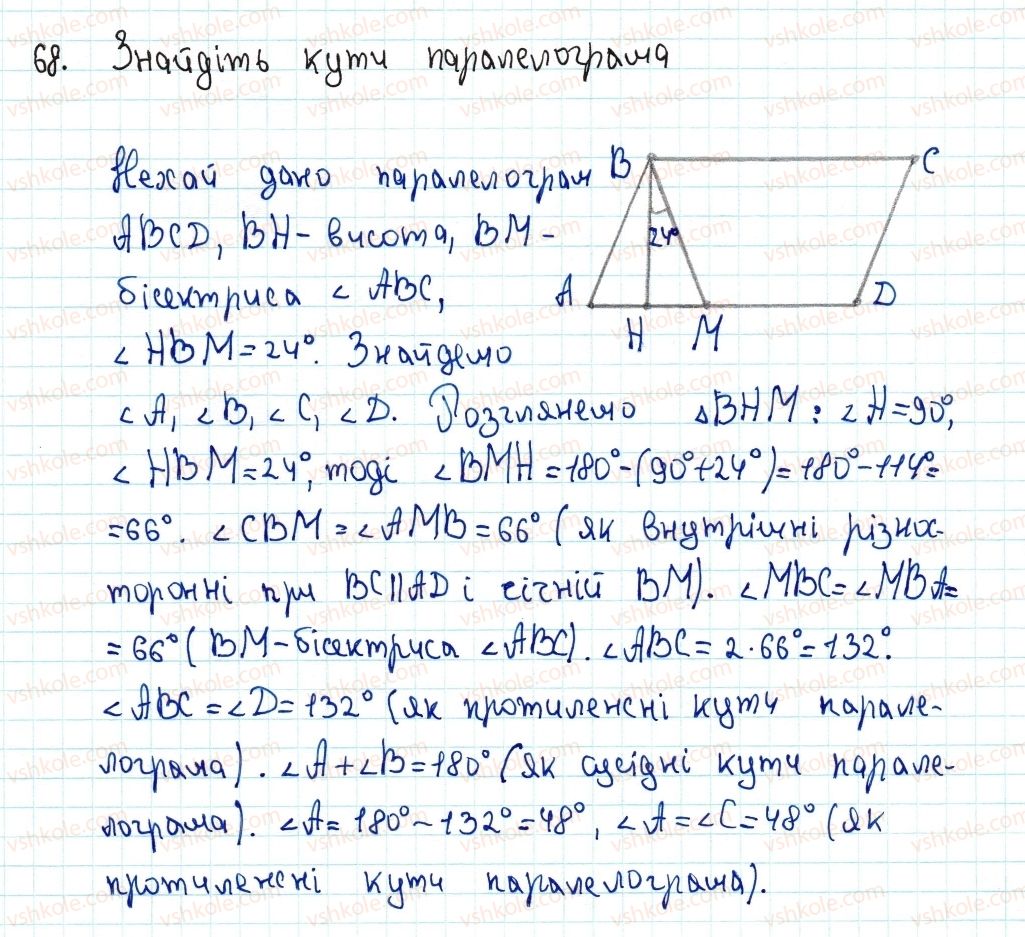 68. Знайдіть кути паралелограма
Нехай дано паралелограм
ABCD, BH - висота, BM -
бісектриса ∠ ABC,
∠ HBM = 24°. Знайдемо
∠ A, ∠ B, ∠ C, ∠ D. Розглянемо ▵ BHM : ∠ H = 90°,
∠ HBM = 24°, тоді ∠ BMH = 180° - (90° + 24°) = 180° - 114° =
= 66°. ∠ CBM = ∠ AMB = 66° (як внутрішні різнос-
торонні при BC || AD і січній BM). ∠ MBC = ∠ MBA =
= 66° (BM - бісектриса ∠ ABC). ∠ ABC = 2 · 66° = 132°.
∠ ABC = ∠ D = 132° (як протилежні кути парале-
лограма). ∠ A + ∠ B = 180° (як сусідні кути парале-
лограма). ∠ A = 180° - 132° = 48°, ∠ A = ∠ C = 48° (як
протилежні кути паралелограма).
B C
24°
A D
H M
vshkole.com